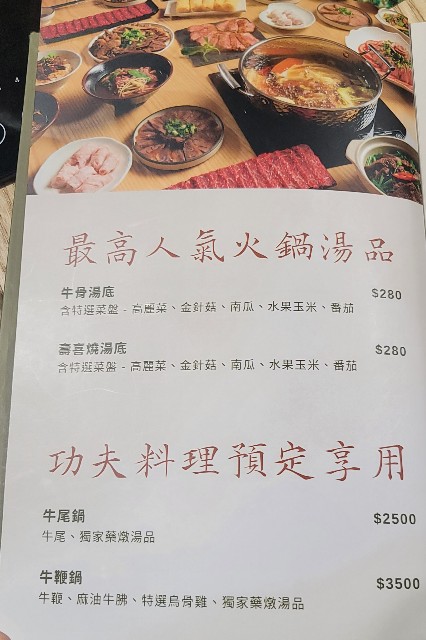 最高人氣火鍋湯品
牛骨湯底 $280
含特選菜盤 - 高麗菜、金針菇、南瓜、水果玉米、番茄
壽喜燒湯底 $280
含特選菜盤 - 高麗菜、金針菇、南瓜、水果玉米、番茄
功夫料理預定享用
牛尾鍋 $2500
牛尾、獨家藥燉湯品
牛鞭鍋 $3500
牛鞭、麻油牛胇、特選烏骨雞、獨家藥燉湯品